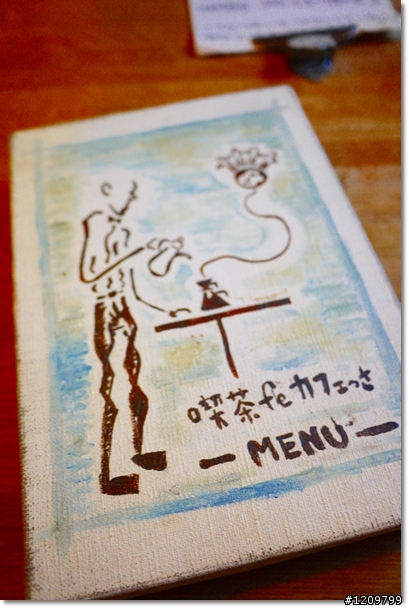 喫茶feカフェっさ
ー MENU ー
#1209799